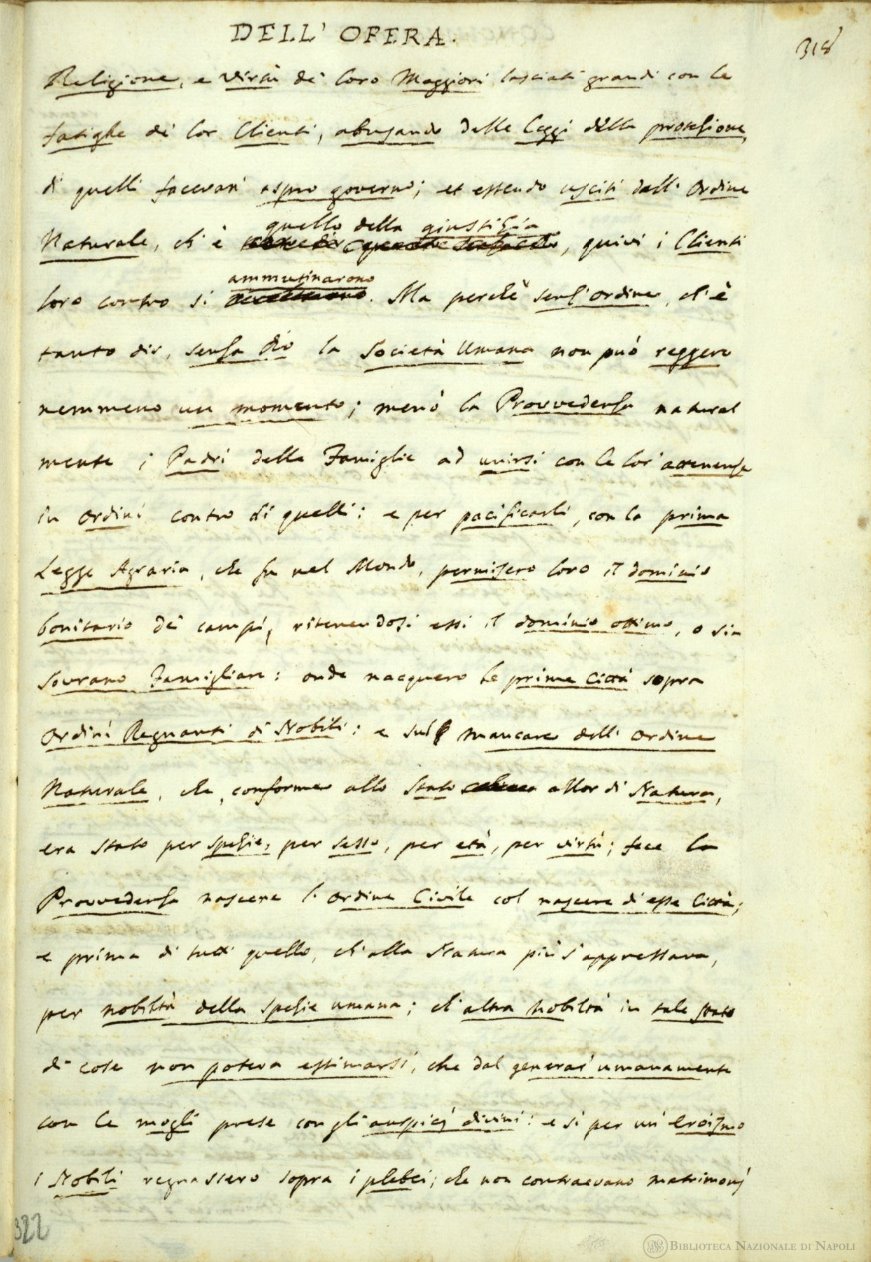 DELL' OPERA.
318
Religione, e virtù de' loro Maggiori lasciati grandi con le
fatighe de' lor Clienti, abusando delle Leggi della protezione,
di quelli facevan aspro governo; et essendo usciti dall' Ordine
quello della giustizia
Naturale, ch' è, quivi i Clienti
ammutinarono
loro contro si. Ma perchè senz' ordine, ch' è
tanto dir, senza Dio la Società Umana non può reggere
nemmeno un momento; menò la Provvedenza natural
mente i Padri delle Famiglie ad unirsi con le lor' attenenze
in Ordini contro di quelli: e per pacificarli, con la prima
Legge Agraria, che fu nel Mondo, permisero loro il dominio
bonitario de' campi, ritenendosi essi il dominio ottimo, o sia
sovrano Famigliare: onde nacquero le prime Città sopra
Ordini Regnanti di Nobili: e sul mancare dell' Ordine
Naturale, che, conforme allo stato allor di Natura,
era stato per spezie, per sesso, per età, per virtù; fece la
Provvedenza nascere l' Ordine Civile col nascere di esse Città;
e prima di tutti quello, ch' alla Natura più s' appressava,
per nobiltà della spezie umana; ch' altra Nobiltà in tale stato
di cose non poteva estimarsi, che dal generar' umanamente
con le mogli prese con gli auspicj divini: e sì per un' Eroismo
i Nobili regnassero sopra i plebei; che non contraevano matrimonj
322
BIBLIOTECA NAZIONALE DI NAPOLI